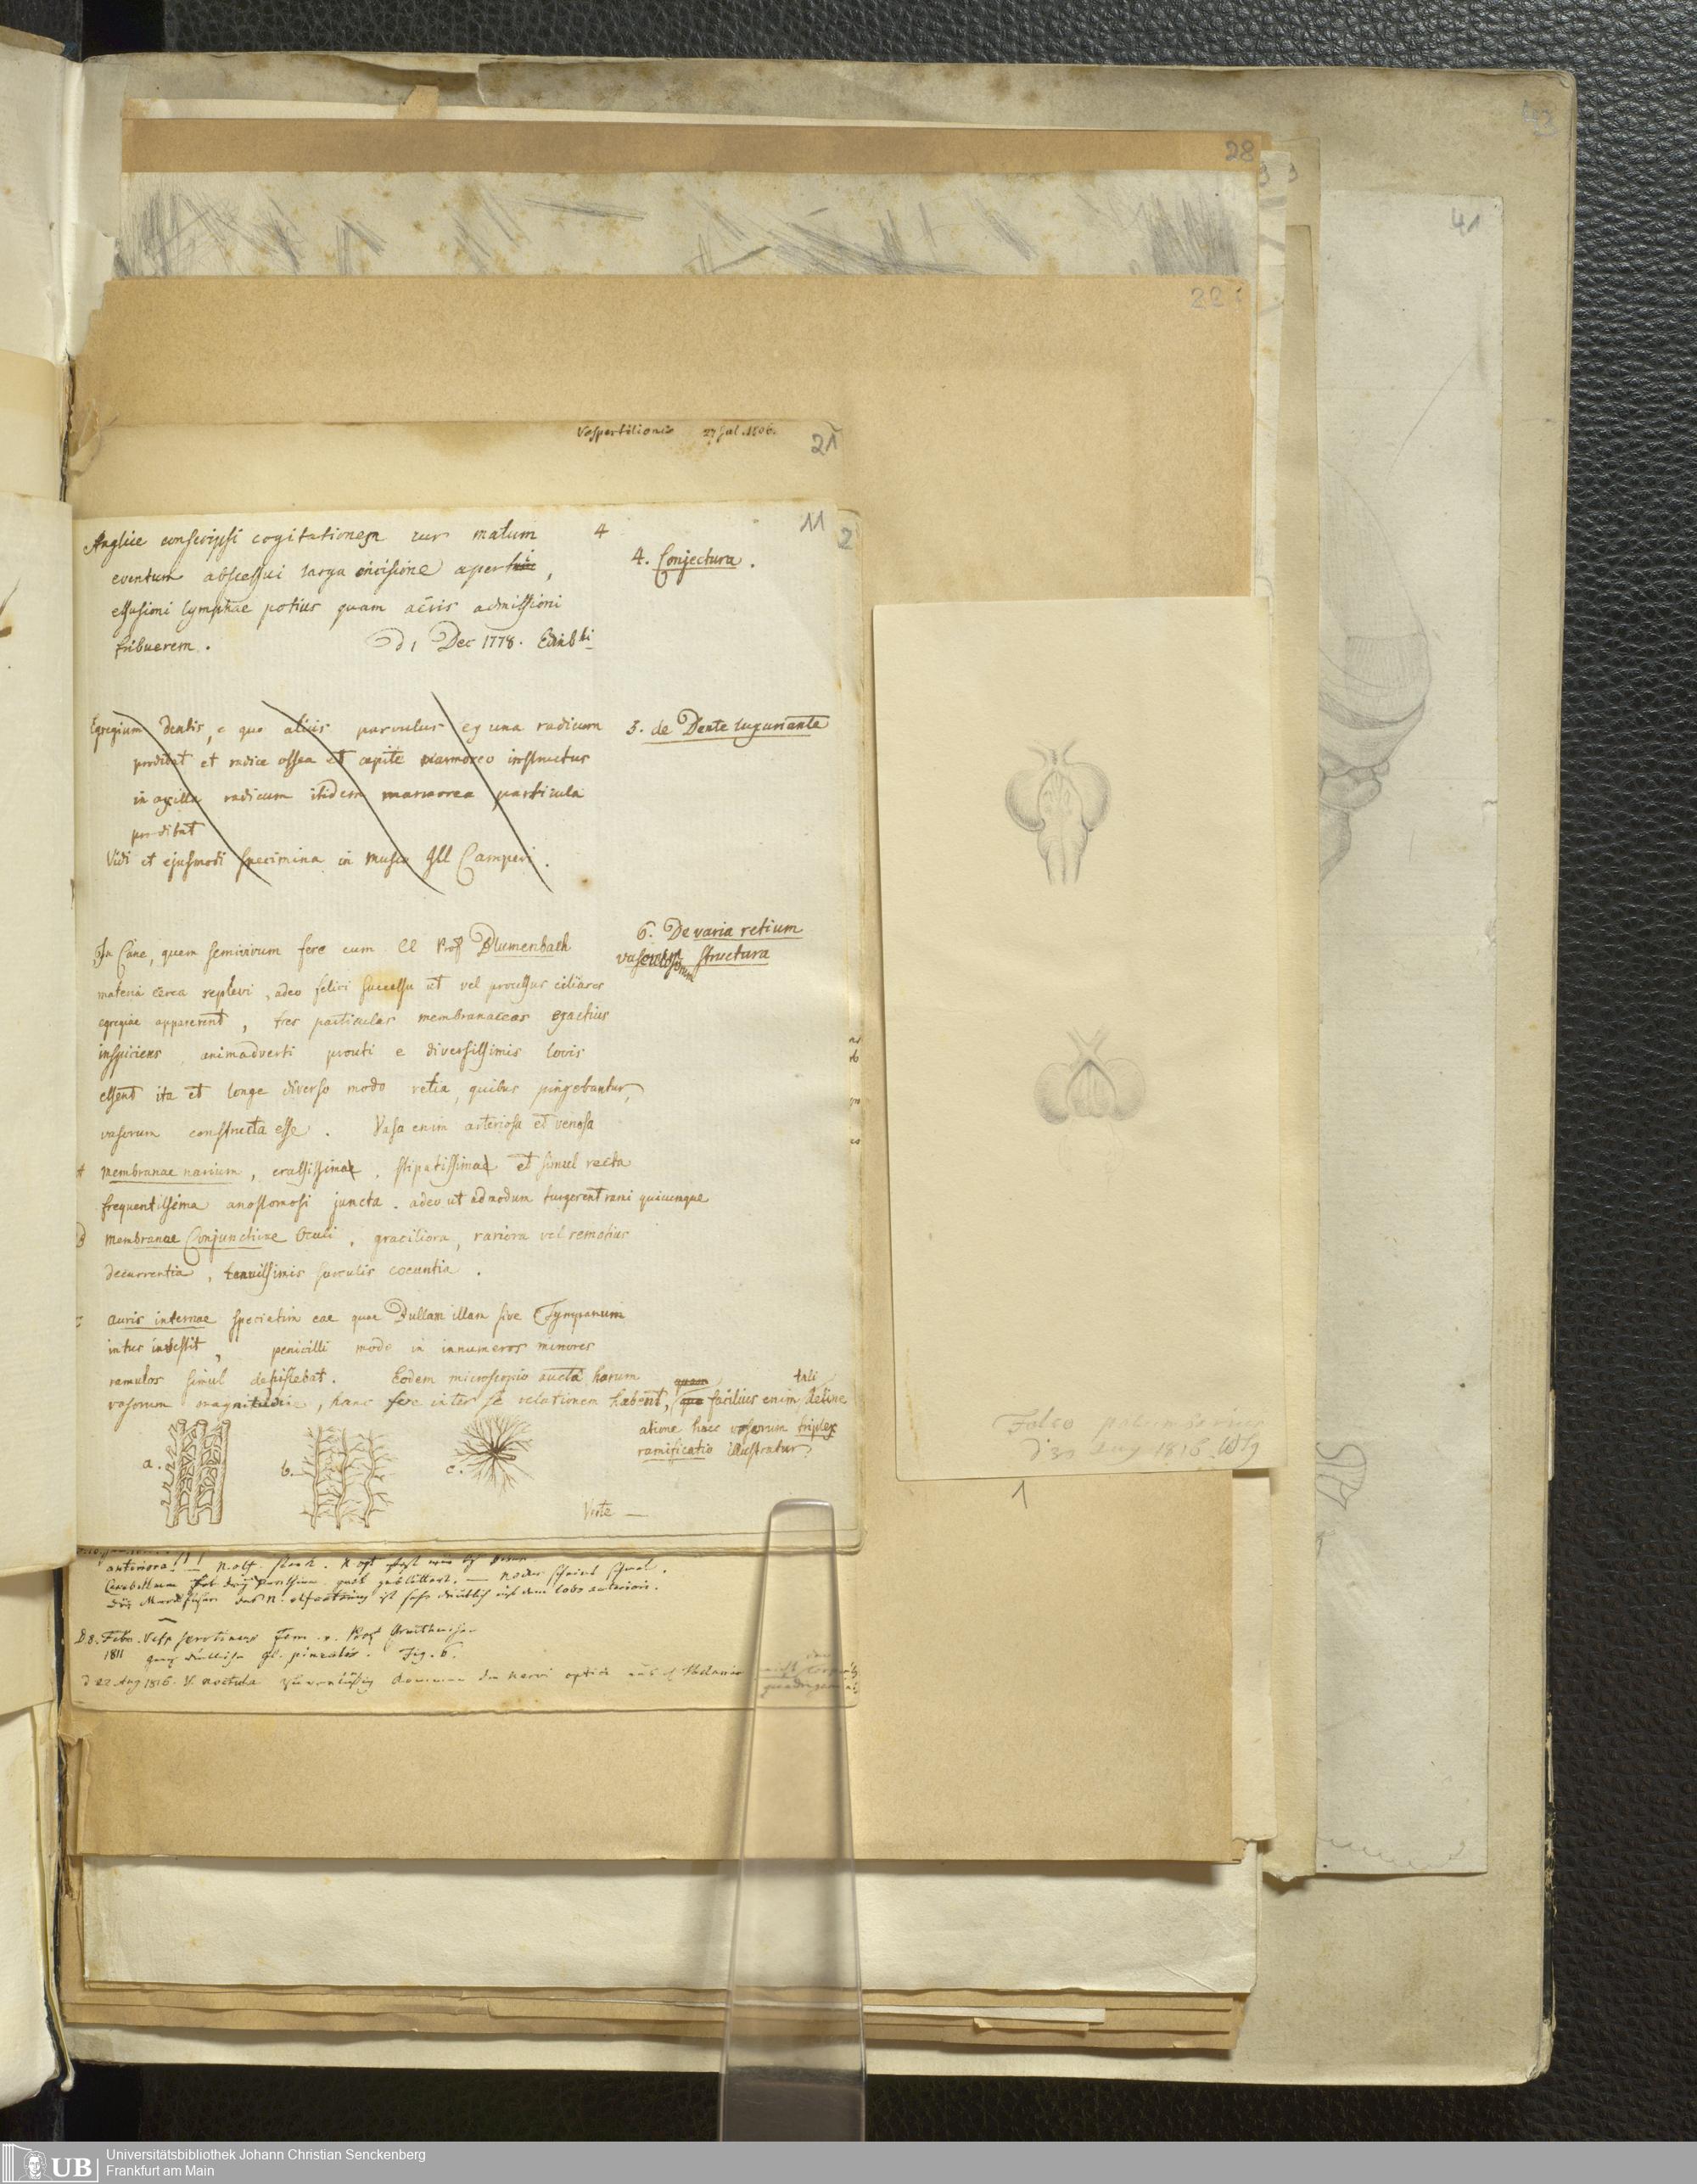 43
28
41
22
Vespertilionis 27 Jul. 1806.
21
11
2
4
Anglice conscripsi cogitationem cur malum
eventum abscessui larga incisione aperti,
effusioni lymphae potius quam aëris admissioni
tribuerem.
D 1 Dec 1778. Edinb
4. Conjectura.
Egregium Dentis, e quo alius parvulus ex una radicum
prodibat et radice ossea et capite marmoreo instructus
in axilla radicum itidem marmorea particula
prodibat
Vidi et ejusmodi specimina in museo Ill Camperi.
5. de Dente luxuriante
In Cane, quem semivivum fere cum Cl Prof Blumenbach
materia cerea replevi, adeo felici successu ut vel processus ciliares
egregie apparerent, tres particulas membranaceas exactius
inspiciens, animadverti prouti e diversissimis locis
essent ita et longe diverso modo retia, quibus pingebantur,
vasorum constructa esse. Vasa enim arteriosa et venosa
membranae narium, crassissima, stipatissima et simul recta
frequentissima anastomosi juncta. adeo ut ad nodum turgerent rami quicunque
B membranae Conjunctivae Oculi, graciliora, rariora vel remotius
decurrentia, tenuissimis surculis coeuntia.
c auris internae speciatim eae quae Bullam illam sive Tympanum
intus investit, penicilli modo in innumeros minores
ramulos simul dehiscebat. Eodem microscopio aucta harum
vasorum magnitudine, hanc fere inter se relationem habent, (facilius enim tali deline
atione haec vasorum triplex
ramificatio illustratur)
6. De varia retium
vasculosorum structura
a.
b.
c.
Verte —
anteriora!!! — N. olf.
Cerebellum
N. olfactorius ist sehr deutlich lobo anterior.
D 8. Febr. Vesp serotinus Fem.
1811 gl. pinealis. Fig. 6.
d 22 Aug 1816. V. noctula nervi optici
Falco
d 30 Aug 1816. Wlg
1
UB
Universitätsbibliothek Johann Christian Senckenberg
Frankfurt am Main